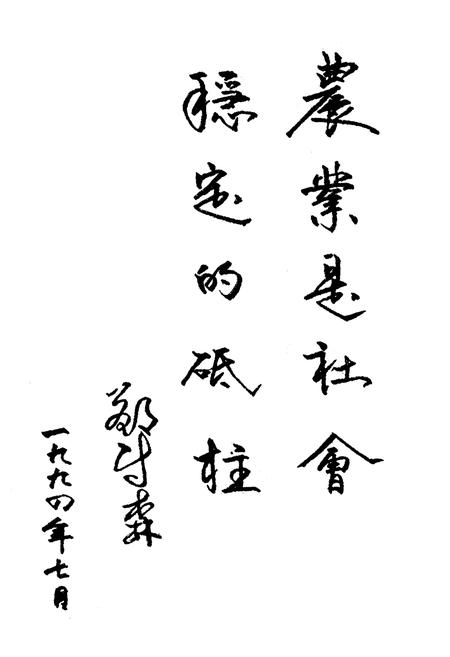 農業是社會
穩定的砥柱
鄭时森
一九九四年七月